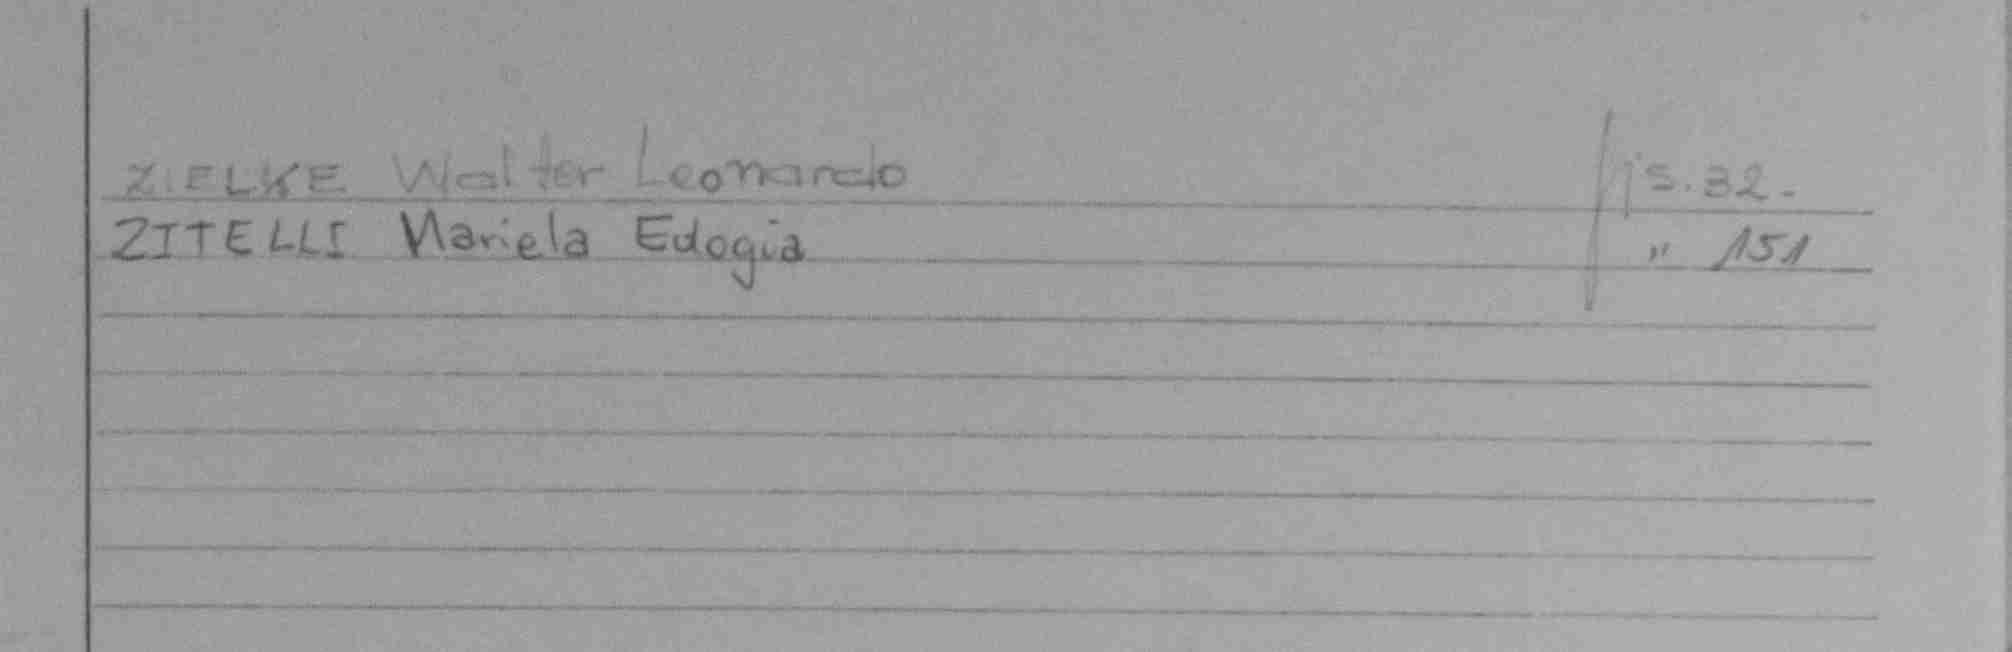 ZIELKE Walter Leonardo fjs. 32.-
ZITELLI Mariela Edogia " 151